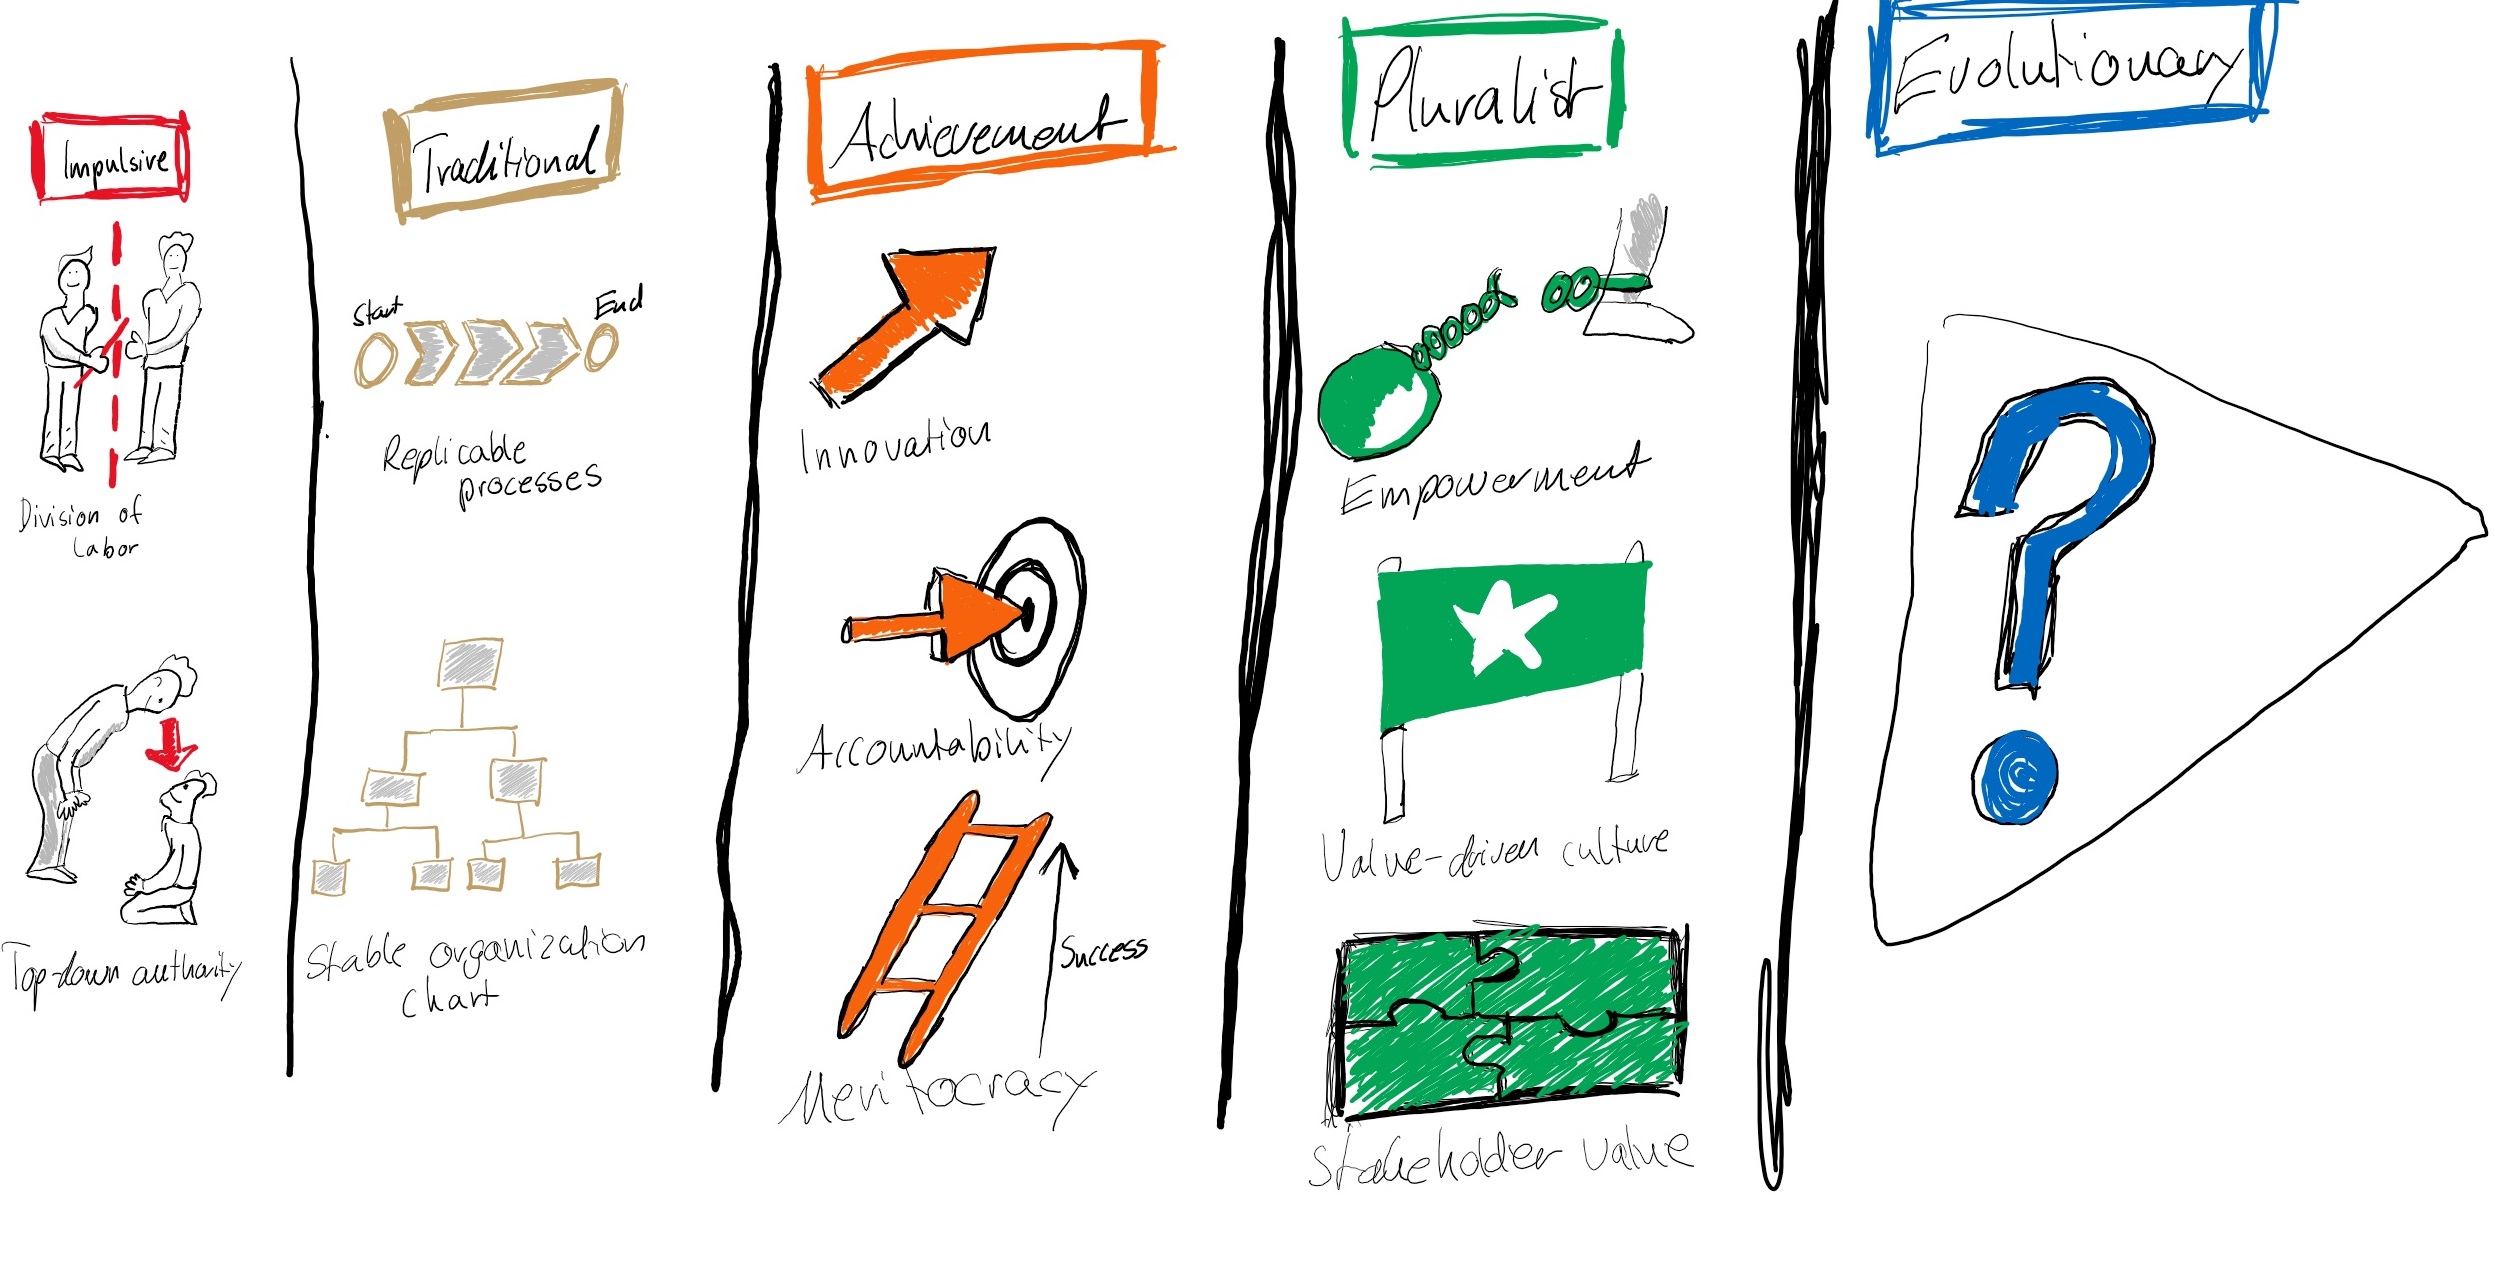 Impulsive
Division of
Labor
Top-down authority
Traditional
Start
End
Replicable
processes
Stable organization
chart
Achievement
Innovation
Accountability
Success
Meritocracy
Pluralist
Empowerment
Value-driven culture
Stakeholder value
Evolutionary
?